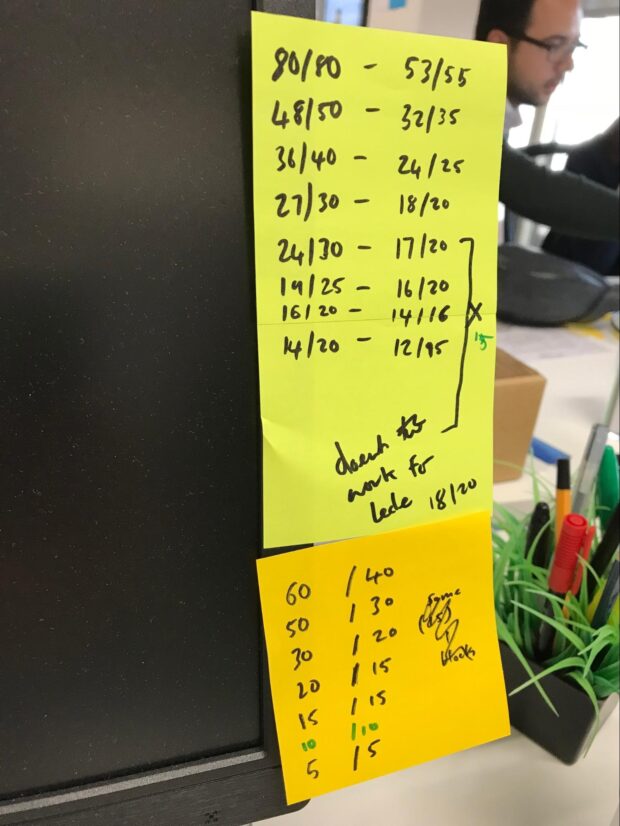 80/80 - 53/55
48/50 - 32/35
36/40 - 24/25
27/30 - 18/20
24/30 - 17/20
19/25 - 16/20
16/20 - 14/16 X
14/20 - 12/15
15
doesnt this
work for
lede 18/20
60 /40
50 /30
30 /20
20 /15
15 /15
10 /10
5 /5
same
blocks